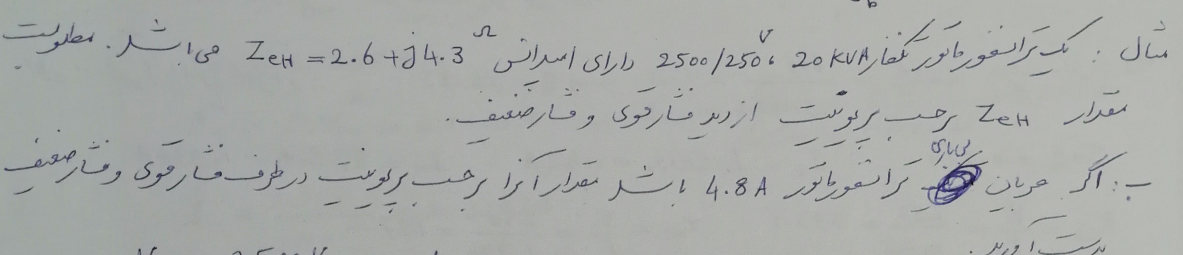 مثال : یک ترانسفورماتور تکفاز 20 KVA ، 2500/250 V دارای امپدانس ZeH = 2.6 + j4.3 Ω می باشد . مطلوبست
مقدار ZeH برحسب پریونیت از دید فشار قوی و فشار ضعیف .
ب : اگر جریان بی باری ترانسفورماتور 4.8 A باشد مقدار آنرا برحسب پریونیت در طرف فشار قوی و فشار ضعیف
بدست آورید .